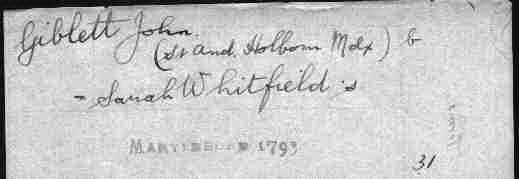 Giblett John.
(St And. Holborn Mdx) b
- Sarah Whitfield s
1793
31